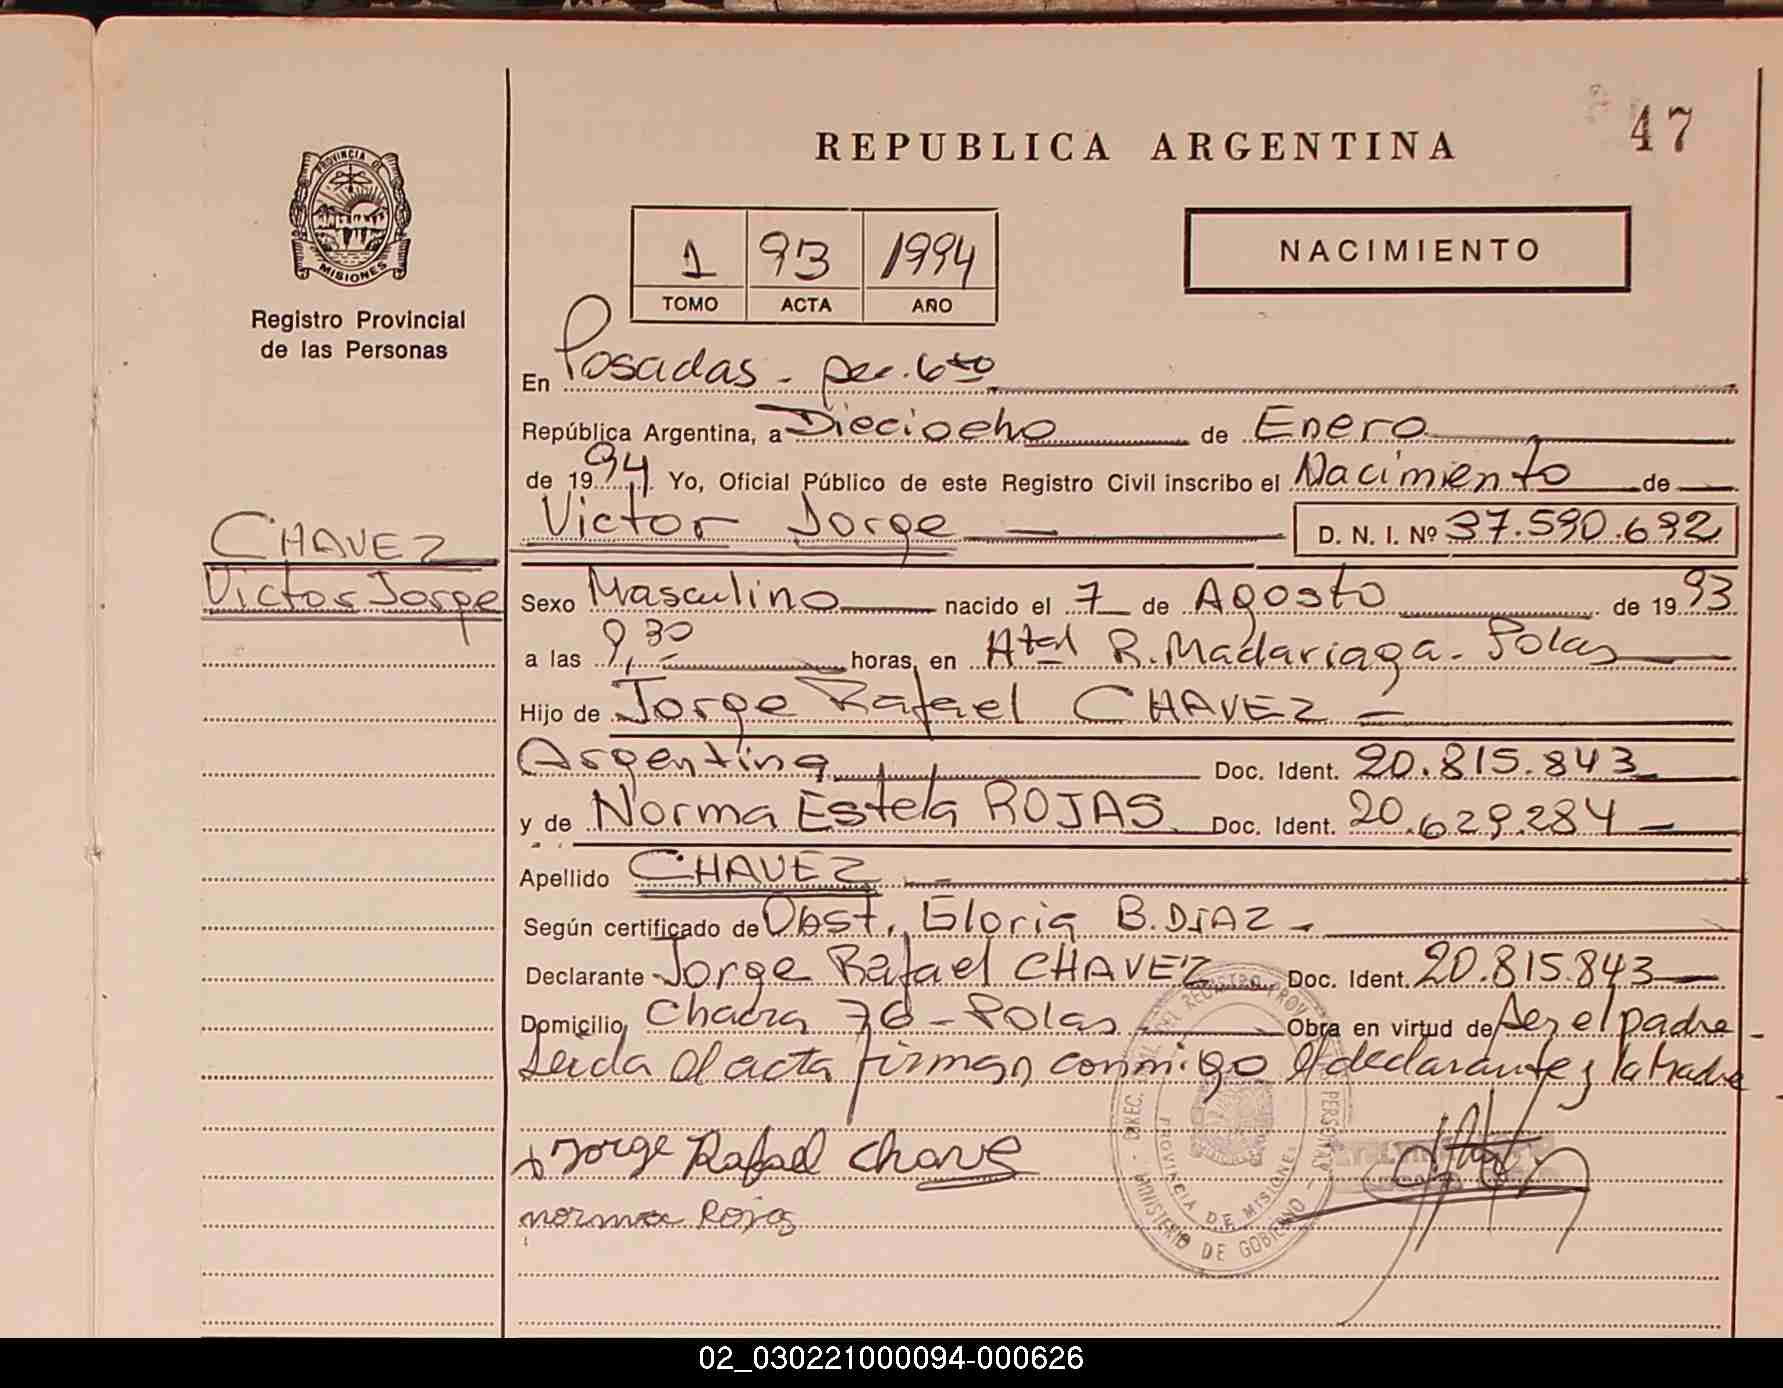 47
REPUBLICA ARGENTINA
PROVINCIA DE
MISIONES
Registro Provincial
de las Personas
1 93 1994
TOMO ACTA AÑO
NACIMIENTO
En Posadas - Sec. 6to
República Argentina, a Dieciocho de Enero
de 1994 Yo, Oficial Público de este Registro Civil inscribo el Nacimiento de
Victor Jorge D. N. I. Nº 37.590.692
CHAVEZ
Victor Jorge
Sexo Masculino nacido el 7 de Agosto de 1993
a las 9,30 horas, en Htal R. Madariaga - Pdas
Hijo de Jorge Rafael CHAVEZ -
Argentina Doc. Ident. 20.815.843
y de Norma Estela ROJAS Doc. Ident. 20.629.284 -
Apellido CHAVEZ -
Según certificado de Obst. Gloria B. DIAZ -
Declarante Jorge Rafael CHAVEZ Doc. Ident. 20.815.843
Domicilio Chacra 76 - Pdas Obra en virtud de ser el padre -
Leida el acta firman conmigo el declarante y la madre
Jorge Rafael Chave
norma Rojas
DIREC. GRAL. DEL REGISTRO PROV. DE LAS PERSONAS - MINISTERIO DE GOBIERNO -
PROVINCIA DE MISIONES
02_030221000094-000626